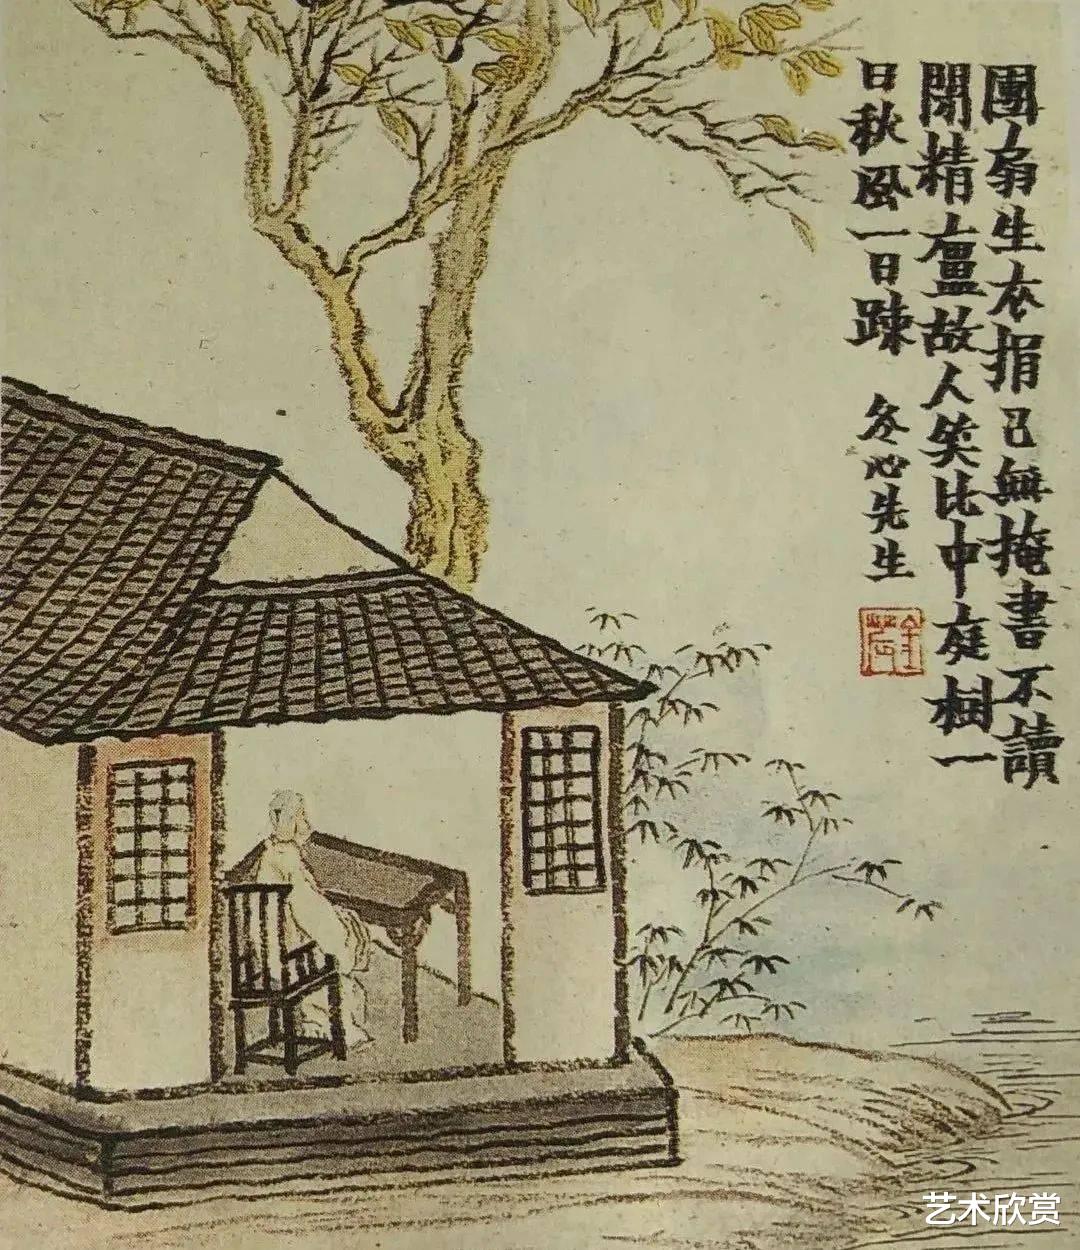 團扇生衣捐已無掩書不讀
閉精廬故人笑比中庭樹一
日秋風一日疎
冬心先生
艺术欣赏